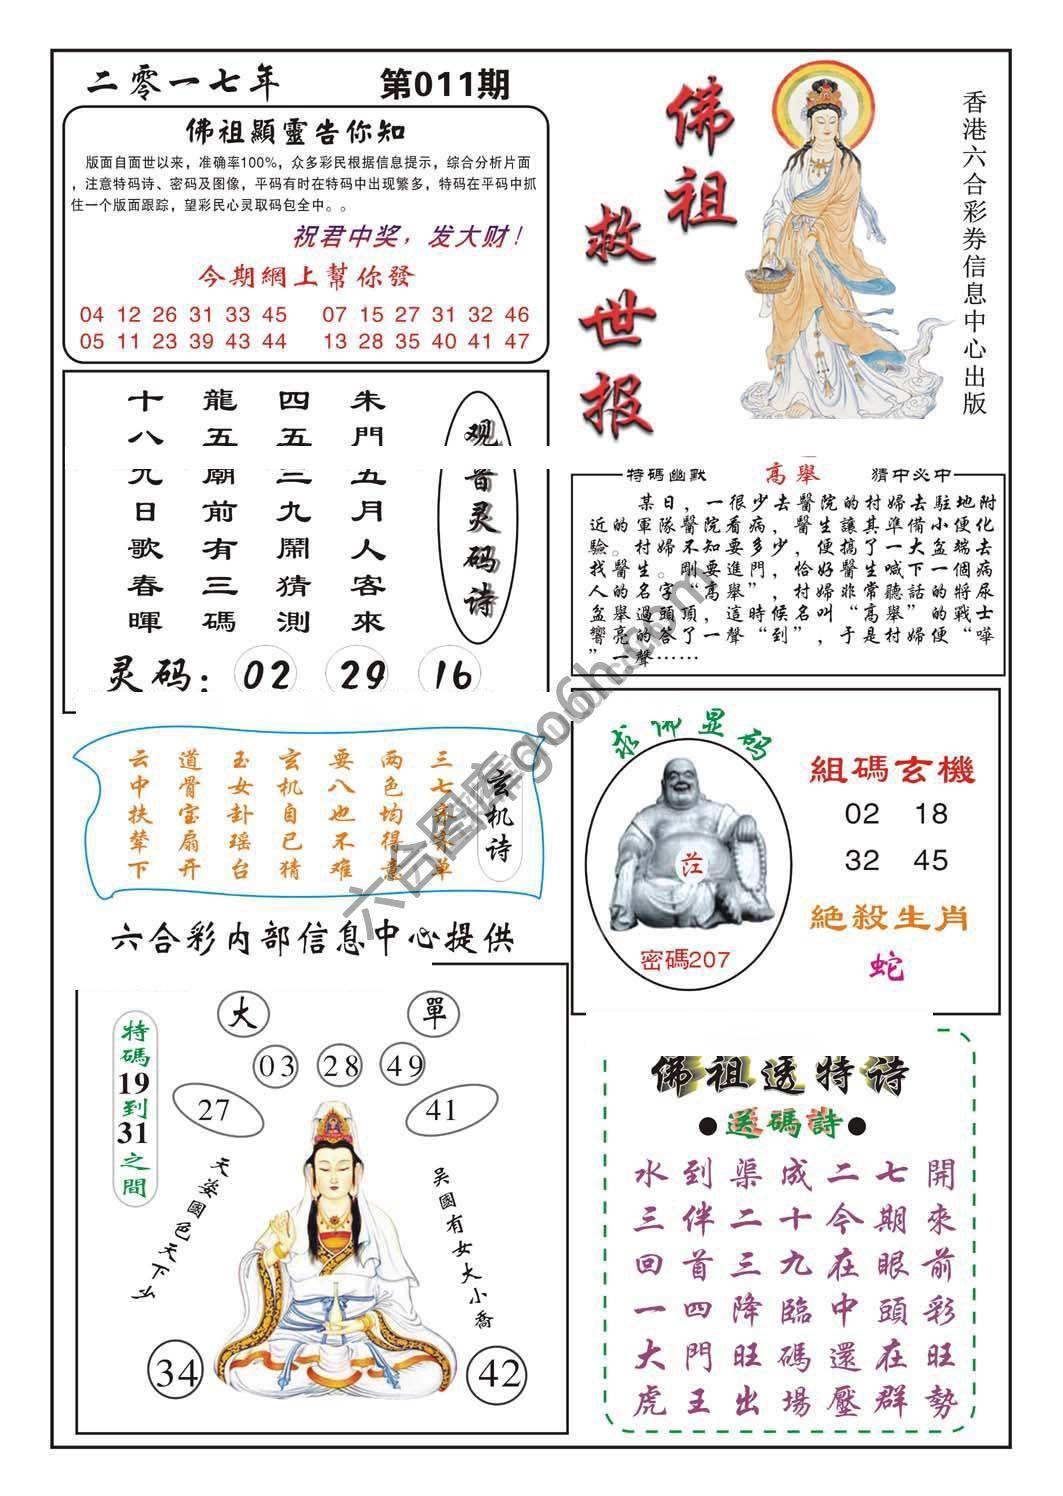 二零一七年
第011期
佛祖顯靈告你知
版面自面世以来，准确率100%，众多彩民根据信息提示，综合分析片面
，注意特码诗、密码及图像，平码有时在特码中出现繁多，特码在平码中抓
住一个版面跟踪，望彩民心灵取码包全中。。
祝君中奖，发大财！
今期網上幫你發
04 12 26 31 33 45
07 15 27 31 32 46
05 11 23 39 43 44
13 28 35 40 41 47
佛祖救世报
香港六合彩券信息中心出版
观音灵码诗
朱門五月人客來
四五三九鬧猜測
龍五廟前有三碼
十八九日歌春暉
灵码：02 29 16
特碼幽默
高舉
猜中必中
某日，一很少去醫院的村婦去駐地附
近的軍隊醫院看病，醫生讓其準備小便化
驗。村婦不知要多少，便搞了一大盆端去
找醫生。剛要進門，恰好醫生喊下一個病
人的名字“高舉”，村婦非常聽話的將尿
盆舉過頭頂，這時候名叫“高舉”的戰士
響亮的答了一聲“到”，于是村婦便“嘩
”一聲……
玄机诗
三七
单
两色均得意
要八也不难
玄机自已猜
玉女卦瑶台
道骨宝扇开
云中扶辇下
六合彩内部信息中心提供
求佛显码
密碼207
組碼玄機
02 18
32 45
絕殺生肖
蛇
特碼19到31之間
大
單
03
28
49
27
41
天姿國色天下
吴國有女大小喬
34
42
佛祖透特诗
送碼詩
水到渠成二七開
三伴二十今期來
回首三九在眼前
一四降臨中頭彩
大門旺碼還在旺
虎王出場壓群勢
六合图库go6h.com